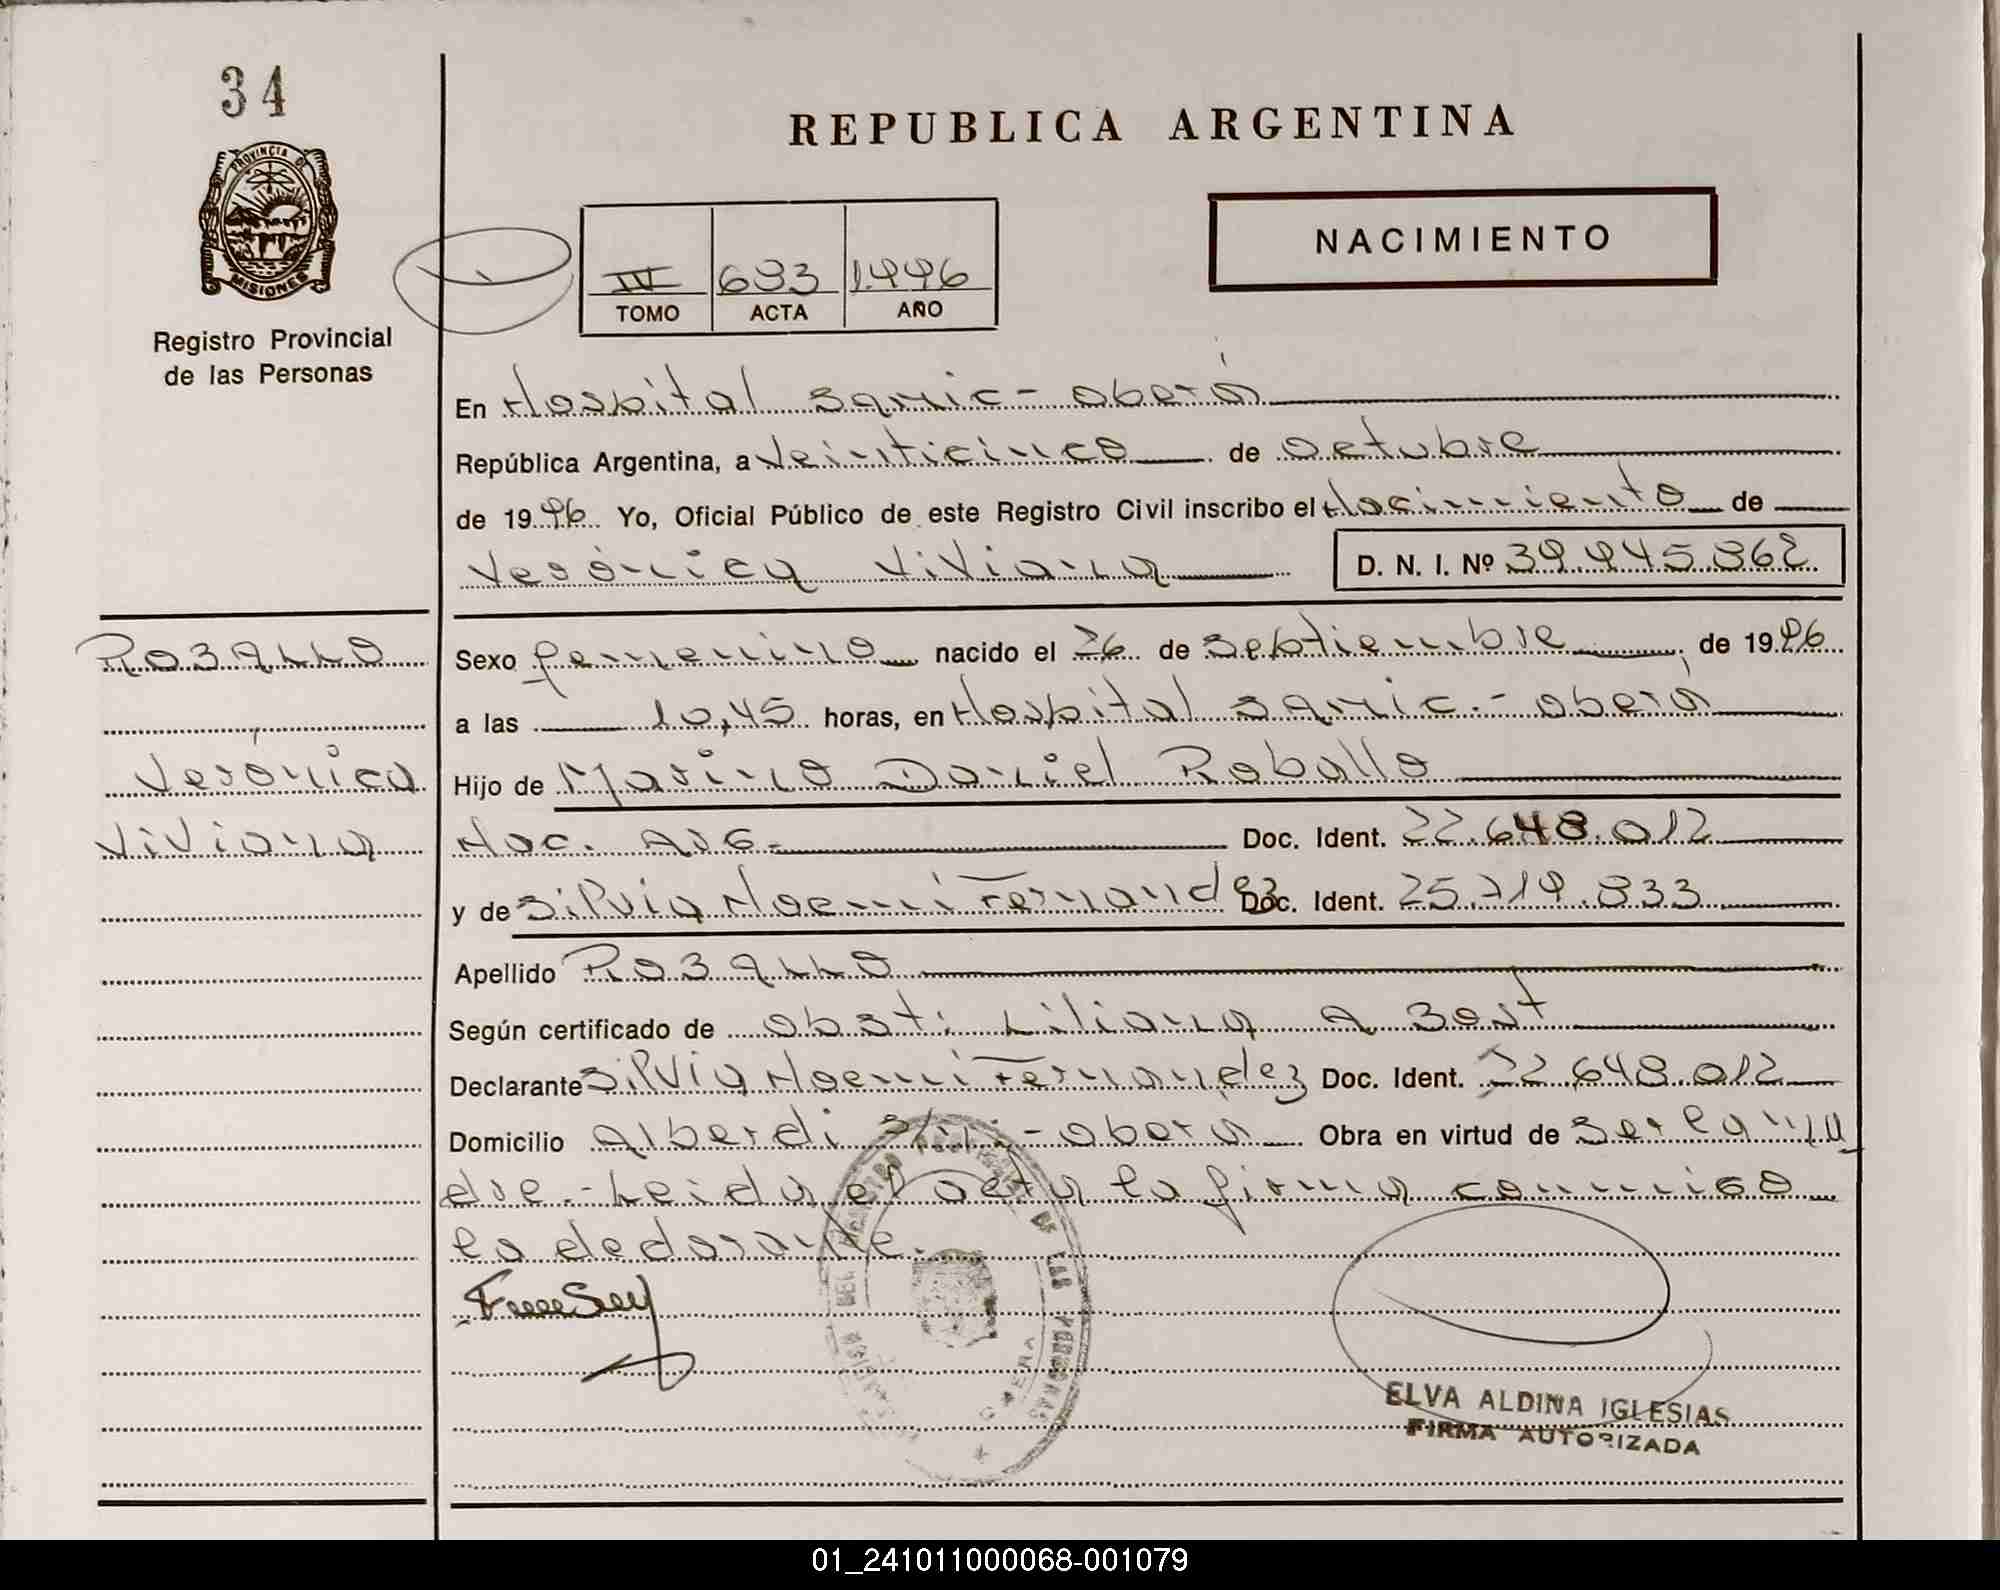 34
REPUBLICA ARGENTINA
PROVINCIA DE
MISIONES
NACIMIENTO
IV 693 1.996
TOMO ACTA AÑO
Registro Provincial
de las Personas
En Hospital Samic - Oberá
República Argentina, a Veinticinco de Octubre
de 1996 Yo, Oficial Público de este Registro Civil inscribo el Nacimiento de
Verónica Viviana D. N. I. Nº 39.945.862
ROBALLO
Sexo femenino nacido el 26 de Septiembre de 1996
a las 10,45 horas, en Hospital Samic. - Oberá
Verónica
Hijo de Marino Daniel Roballo
Viviana
Nac. Arg. Doc. Ident. 22.648.012
y de Silvia Noemi Fernandez Doc. Ident. 25.719.833
Apellido ROBALLO
Según certificado de Obst: Liliana A Bost
Declarante Silvia Noemi Fernandez Doc. Ident. 22.648.012
Domicilio Alberdi s/n - Obera Obra en virtud de Ser la ma
dre. - Leida el acta la firma conmigo
la declarante.
DEL REGISTRO PROVINCIAL DE LAS PERSONAS
OBERA
ELVA ALDINA IGLESIAS
FIRMA AUTORIZADA
01_241011000068-001079